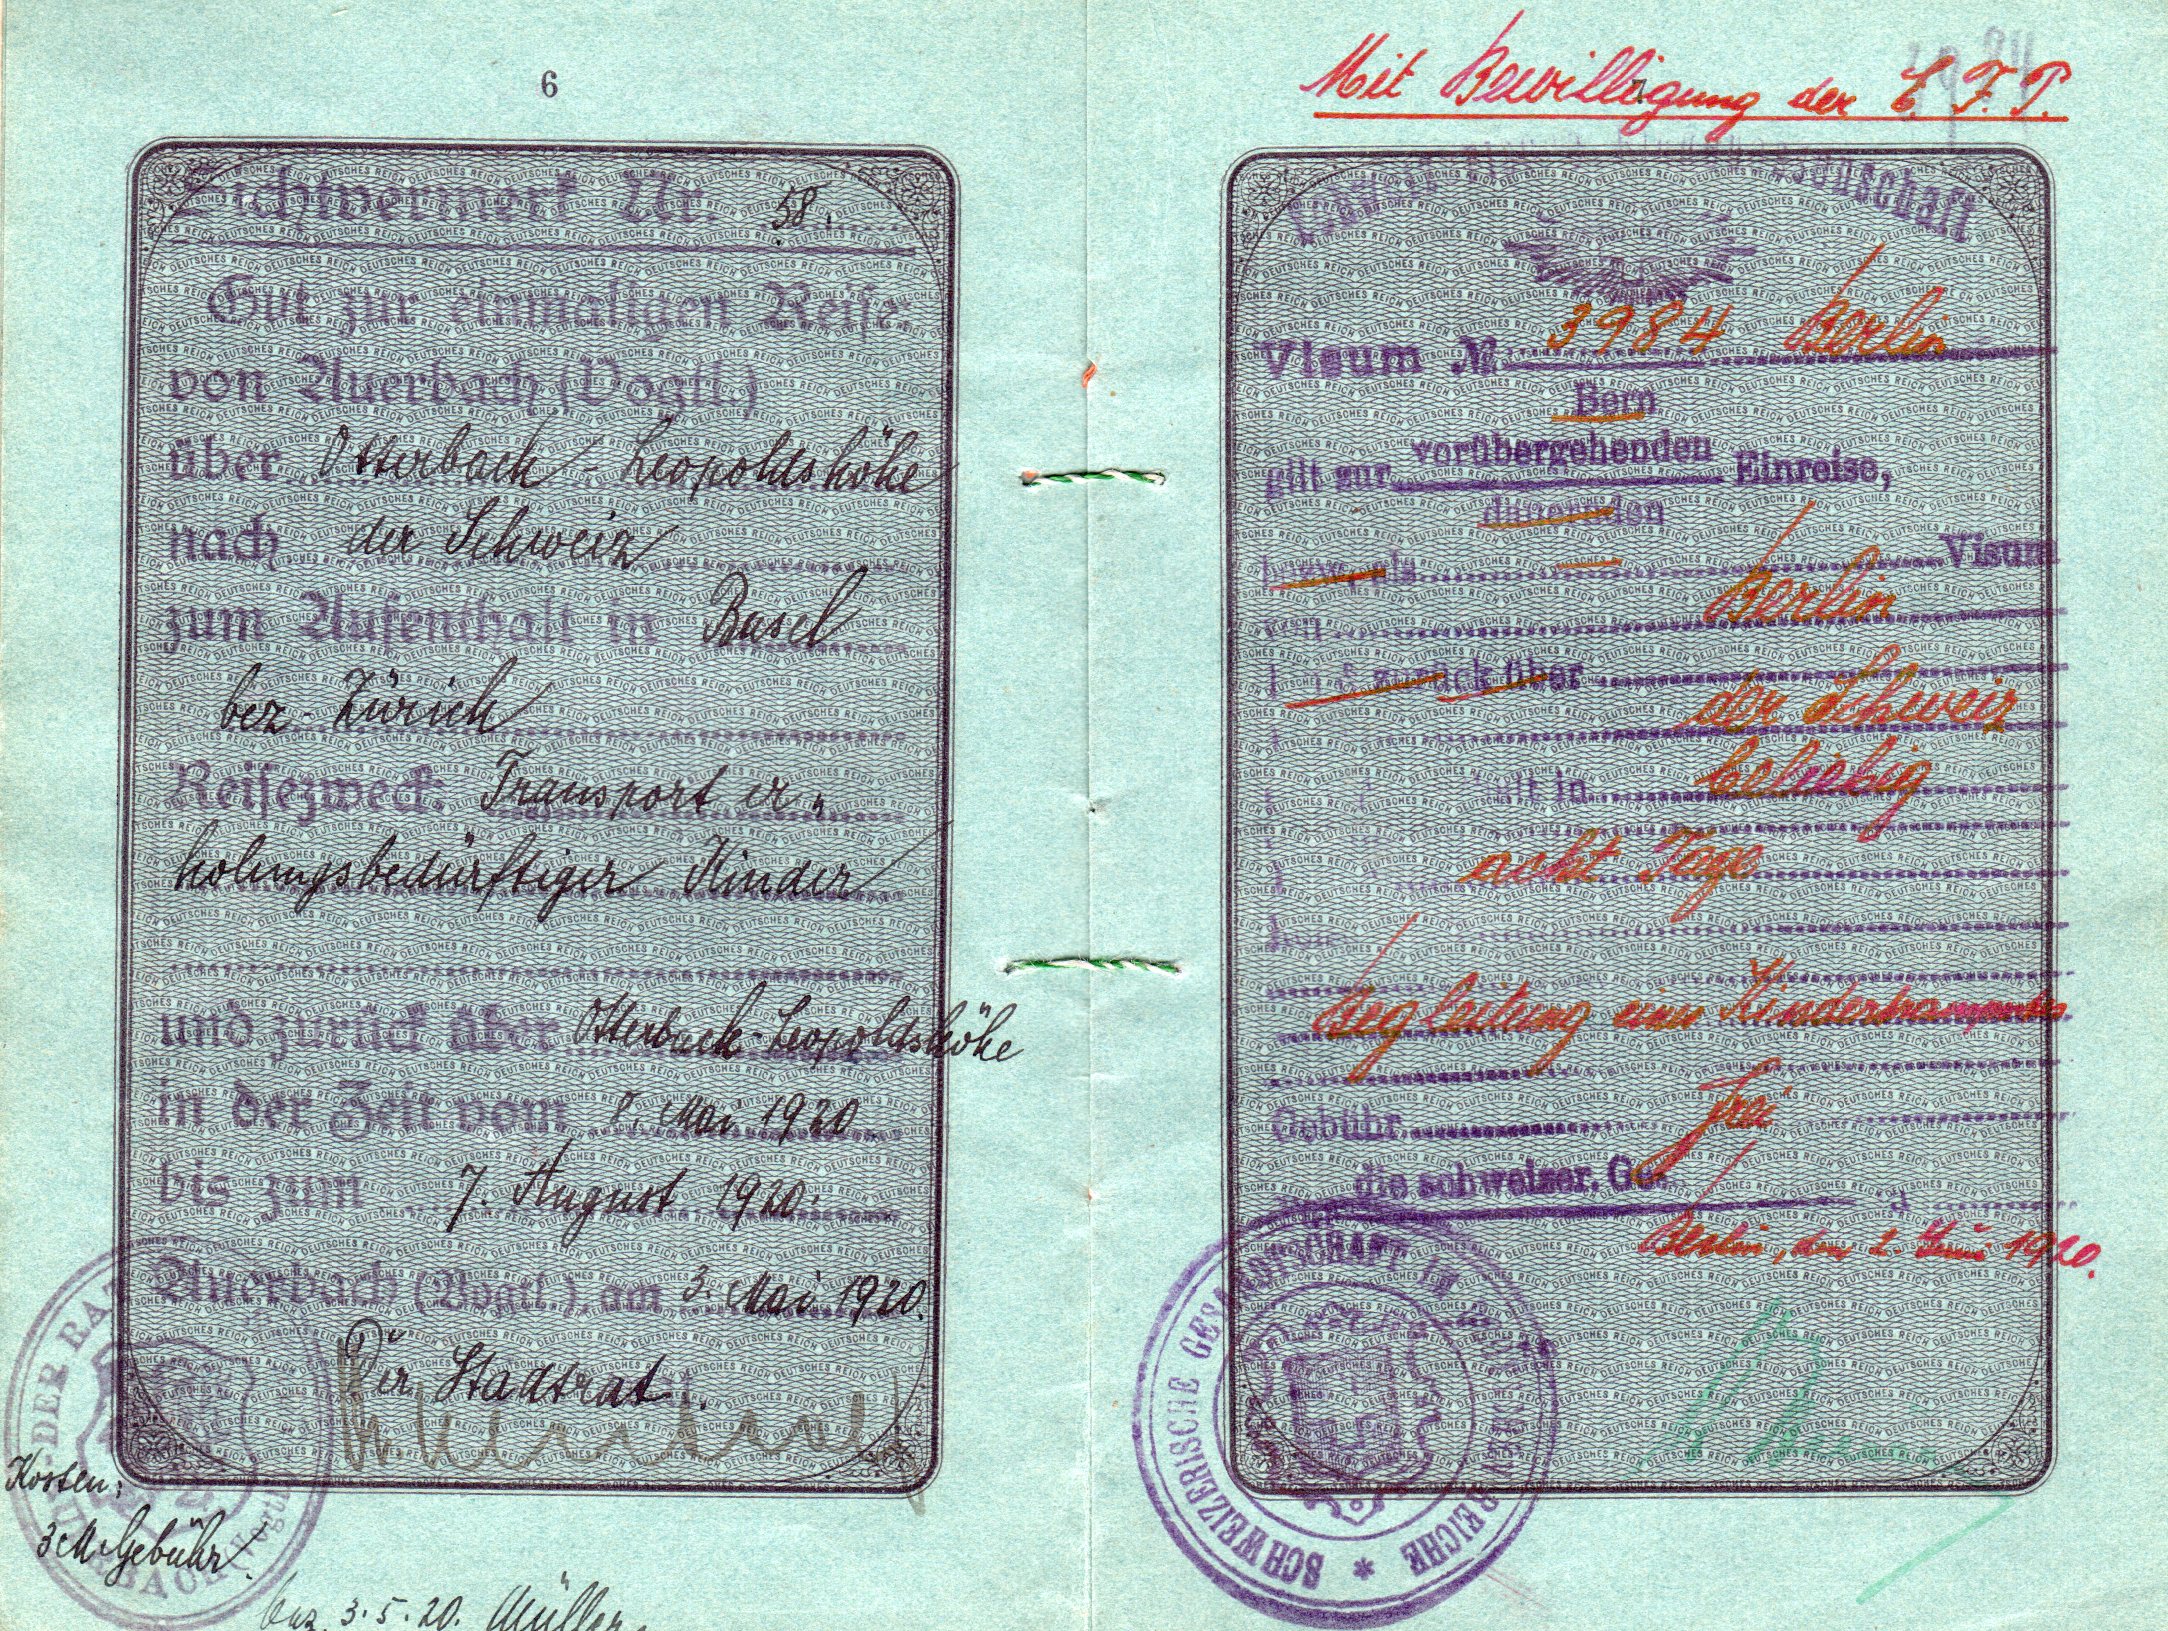 6
Sichtvermerk Nr. 58.
Gut zur einmaligen Reise
von Auerbach (Vogtl.)
über Otterbach - Leopoldshöhe
nach der Schweiz
zum Aufenthalt in Basel
bez. Zürich
Reisezweck: Transport er-
holungsbedürftiger Kinder
und zurück über Otterbach-Leopoldshöhe
in der Zeit vom 8. Mai 1920
bis zum 7. August 1920.
Auerbach (Vogtl.), am 3. Mai 1920.
Der Stadtrat.
DER RAT
AUERBACH (Vogtl.)
Kosten:
3 M Gebühr.
bez. 3.5.20. Müller
Mit Bewilligung der E. F. P.
3984
7
Visum № 3984 Berlin
Bern
gilt zur vorübergehenden Einreise,
dauernden
Visum
Berlin
zurück über
der Schweiz
beliebig
acht Tage
Begleitung eines Kindertransportes
Gebühr frei
die schweizer. Ge
Berlin, den 2. Juni 1920.
SCHWEIZERISCHE GESANDTSCHAFT IM DEUTSCHEN REICHE *